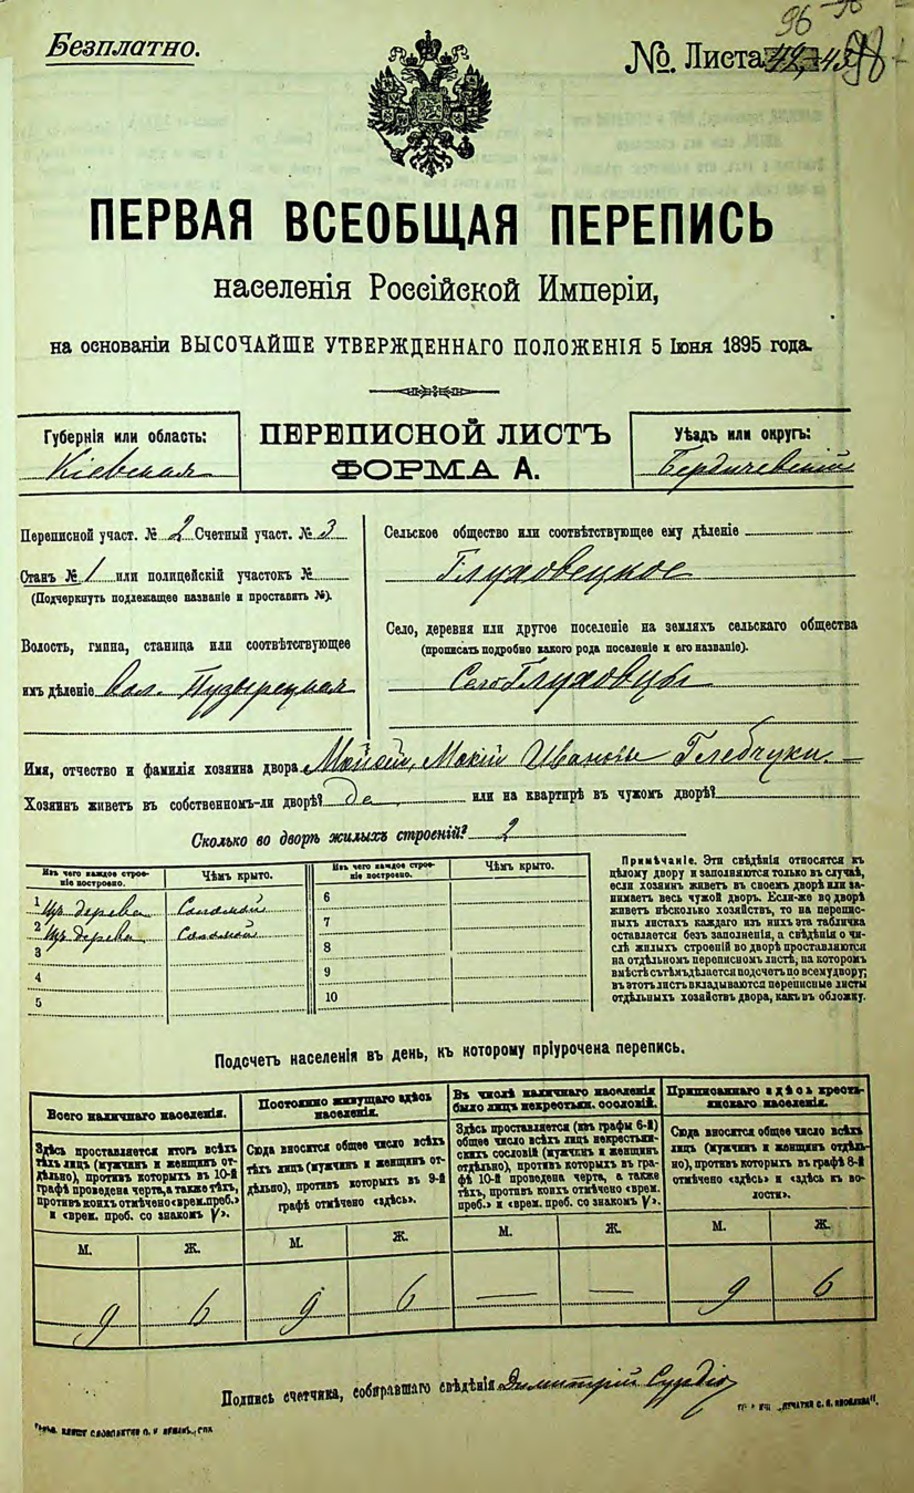 Безплатно.
№. Листа
96
ПЕРВАЯ ВСЕОБЩАЯ ПЕРЕПИСЬ
населенія Россійской Имперіи,
на основаніи ВЫСОЧАЙШЕ УТВЕРЖДЕННАГО ПОЛОЖЕНІЯ 5 Іюня 1895 года.
Губернія или область:
Кіевская
ПЕРЕПИСНОЙ ЛИСТЪ
ФОРМА А.
Уѣздъ или округъ:
Бердичевскій
Переписной участ. № 2 Счетный участ. № 3
Станъ № 1 или полицейскій участокъ №
(Подчеркнуть подлежащее названіе и проставить №).
Волость, гмина, станица или соотвѣтствующее
ихъ дѣленіе Вол. Пузырецкая
Сельское общество или соотвѣтствующее ему дѣленіе
Глуховецкое
Село, деревня или другое поселеніе на земляхъ сельскаго общества
(прописать подробно какого рода поселеніе и его названіе).
Село Глуховцы
Имя, отчество и фамилія хозяина двора Мойсей, Мокій Ивановы Глебчуки.
Хозяинъ живетъ въ собственномъ-ли дворѣ? Да или на квартирѣ въ чужомъ дворѣ?
Сколько во дворѣ жилыхъ строеній? 2
Изъ чего каждое строеніе построено.
Чѣмъ крыто.
1 Изъ дерева Соломой
2 Изъ дерева Соломой
3
4
5
Изъ чего каждое строеніе построено.
Чѣмъ крыто.
6
7
8
9
10
Примѣчаніе. Эти свѣдѣнія относятся къ
цѣлому двору и заполняются только въ случаѣ,
если хозяин живетъ въ своемъ дворѣ или занимаетъ
весь чужой дворъ. Если-же во дворѣ
живетъ нѣсколько хозяйствъ, то на переписныхъ
листахъ каждаго изъ нихъ эта табличка
оставляется безъ заполненія, а свѣдѣнія о числѣ
жилыхъ строеній во дворѣ проставляются
на отдѣльномъ переписномъ листѣ, на которомъ
вмѣстѣ съ тѣмъ дѣлается подсчетъ по всему двору;
въ этотъ листъ вкладываются переписные листы
отдѣльныхъ хозяйствъ двора, какъ въ обложку.
Подсчетъ населенія въ день, къ которому пріурочена перепись.
Всего наличнаго населенія.
Здѣсь проставляется итогъ всѣхъ
тѣхъ лицъ (мужчинъ и женщинъ отдѣльно),
противъ которыхъ въ 10-й
графѣ проведена черта, а также тѣхъ,
противъ коихъ отмѣчено «врем. преб.»
и «врем. преб. со знакомъ V».
М. Ж.
9 6
Постоянно живущаго здѣсь
населенія.
Сюда вносится общее число всѣхъ
тѣхъ лицъ (мужчинъ и женщинъ отдѣльно),
противъ которыхъ въ 9-й
графѣ отмѣчено «здѣсь».
М. Ж.
9 6
Въ числѣ наличнаго населенія
было лицъ некрестьян. сословій.
Здѣсь проставляется (изъ графы 6-й)
общее число всѣхъ лицъ некрестьянскихъ
сословій (мужчинъ и женщинъ
отдѣльно), противъ которыхъ въ графѣ
10-й проведена черта, а также
тѣхъ, противъ коихъ отмѣчено «врем.
преб.» и «врем. преб. со знакомъ V».
М. Ж.
— —
Приписаннаго здѣсь крестьянскаго
населенія.
Сюда вносится общее число всѣхъ
лицъ (мужчинъ и женщинъ отдѣльно),
противъ которыхъ въ графѣ 8-й
отмѣчено «здѣсь» и «здѣсь къ волости».
М. Ж.
9 6
Подпись счетчика, собиравшаго свѣдѣнія Димитрій